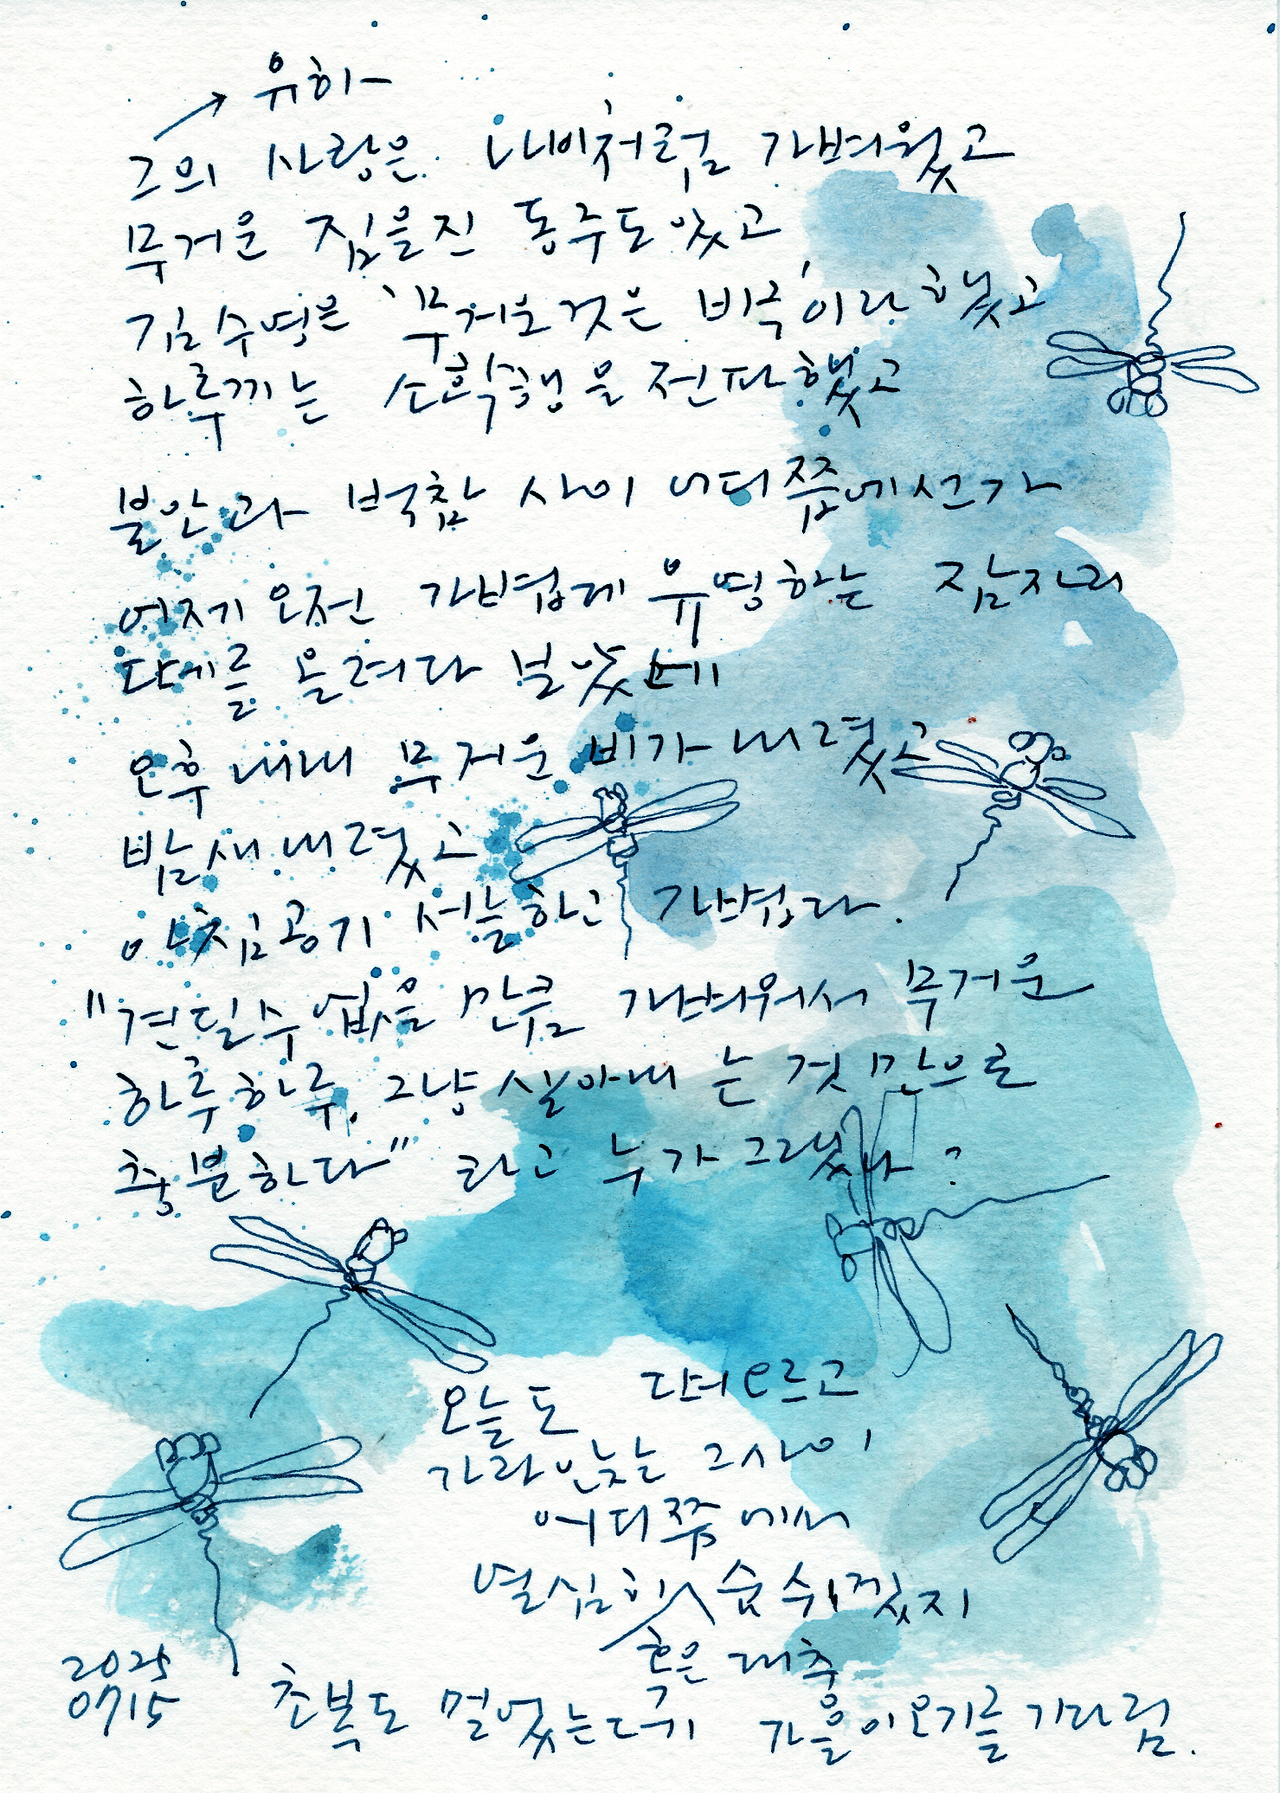 유하
그의 사랑은 나비처럼 가벼웠고
무거운 짐을진 동주도 있고
김수영은 '무거운것은 비극'이라 했고
하루끼는 소확행을 전파했고
불안과 벅참 사이 어디쯤에선가
어제 오전 가볍게 유영하는 잠자리
떼를 올려다 보았는데
오후 내내 무거운 비가 내렸고
밤새 내렸고
아침공기 서늘하고 가볍다.
"견딜수 없을 만큼 가벼워서 무거운
하루하루, 그냥 살아내는 것 만으로
충분하다" 라고 누가 그랬나?
오늘도 떠오르고
가라앉는 그 사이
어디쯤에서
열심히 숨 쉬겠지
혹은 대충
2025
0715
초복도 멀었는데 가을이 오기를 기다림.